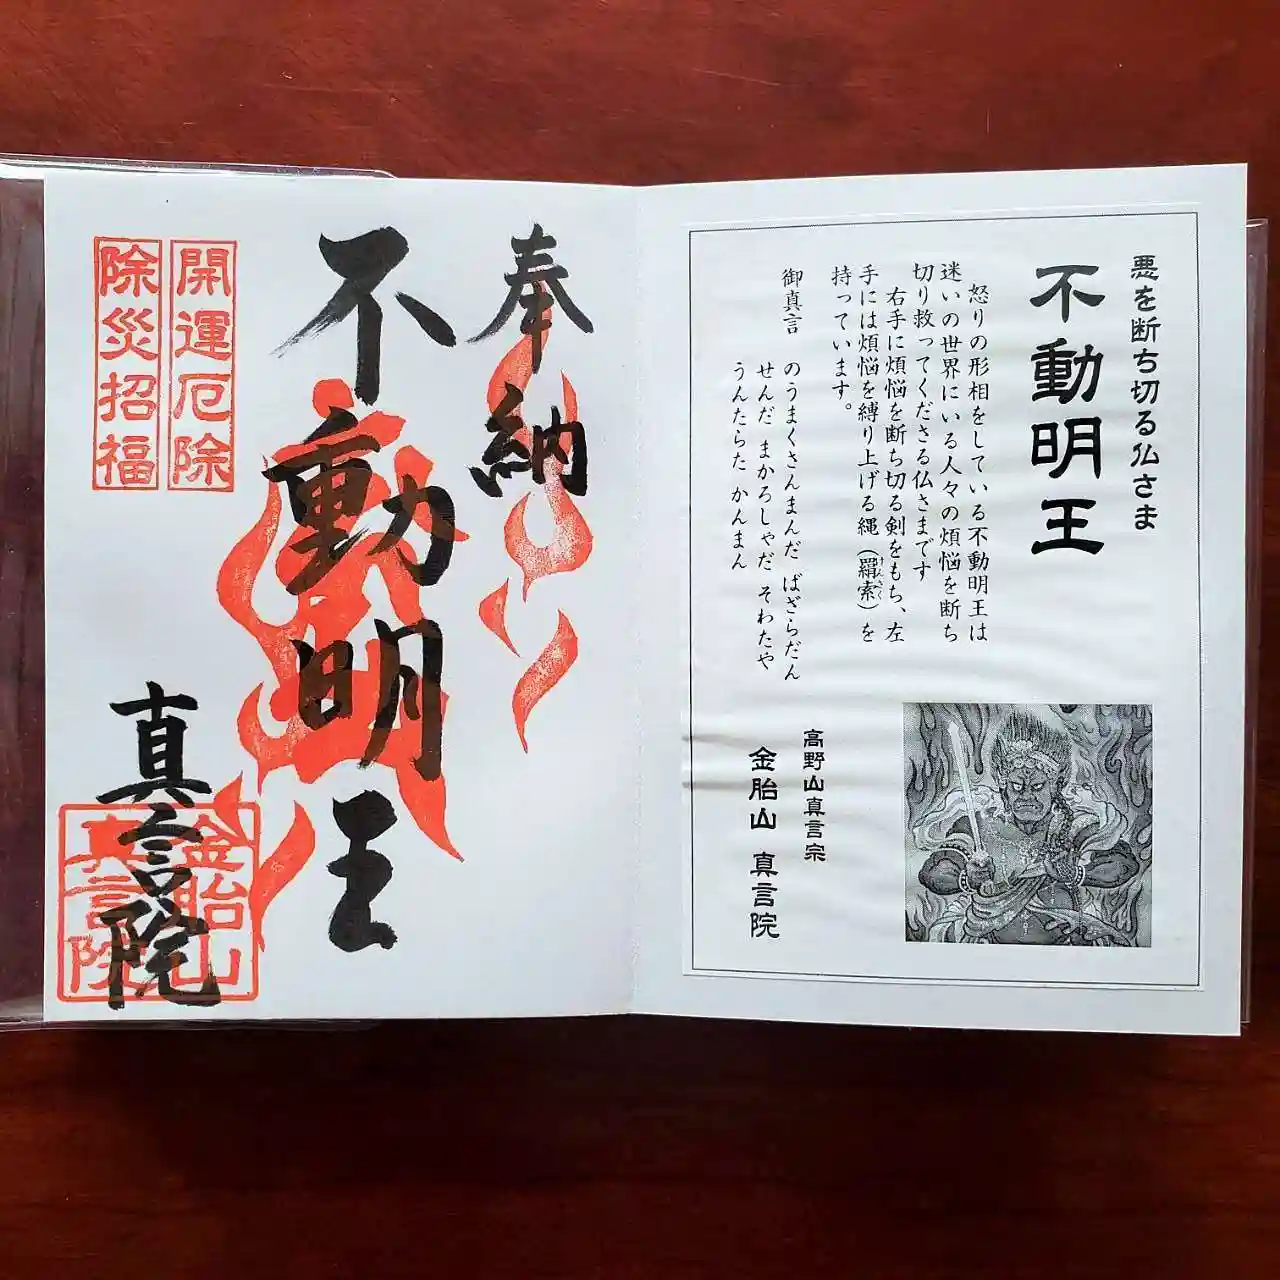 悪を断ち切る仏さま
不動明王
怒りの形相をしている不動明王は
迷いの世界にいる人々の煩悩を断ち
切り救ってくださる仏さまです
右手に煩悩を断ち切る剣をもち、左
手には煩悩を縛り上げる縄（羂索）を
けんさく
持っています。
御真言 のうまくさんまんだ ばざらだん
せんだ まかろしゃだ そわたや
うんたらた かんまん
高野山真言宗
金胎山 真言院
奉納
不動明王
開運厄除
除災招福
真言院
金胎山
真言院